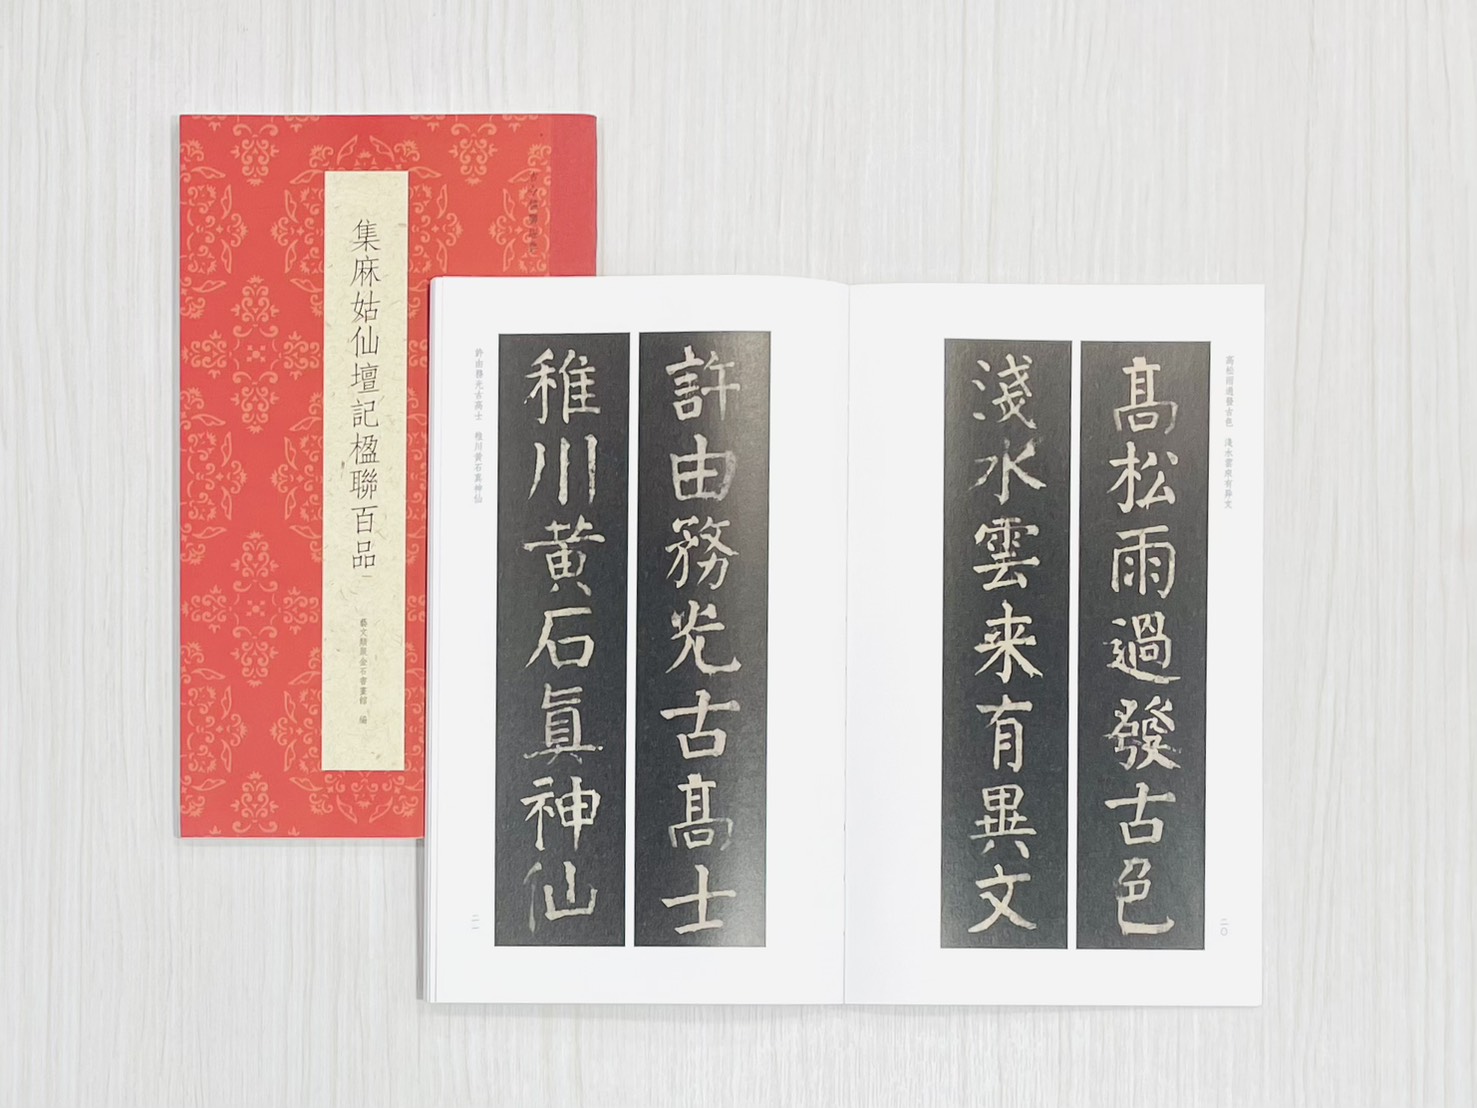 集麻姑仙壇記楹聯百品
藝文類聚金石書畫館 編
高松雨過發古色 淺水雲來有異文
髙松雨過發古色
淺水雲来有異文
二〇
許由務光古髙士
稚川黄石眞神仙
許由務光古高士 稚川黄石真神仙
二一